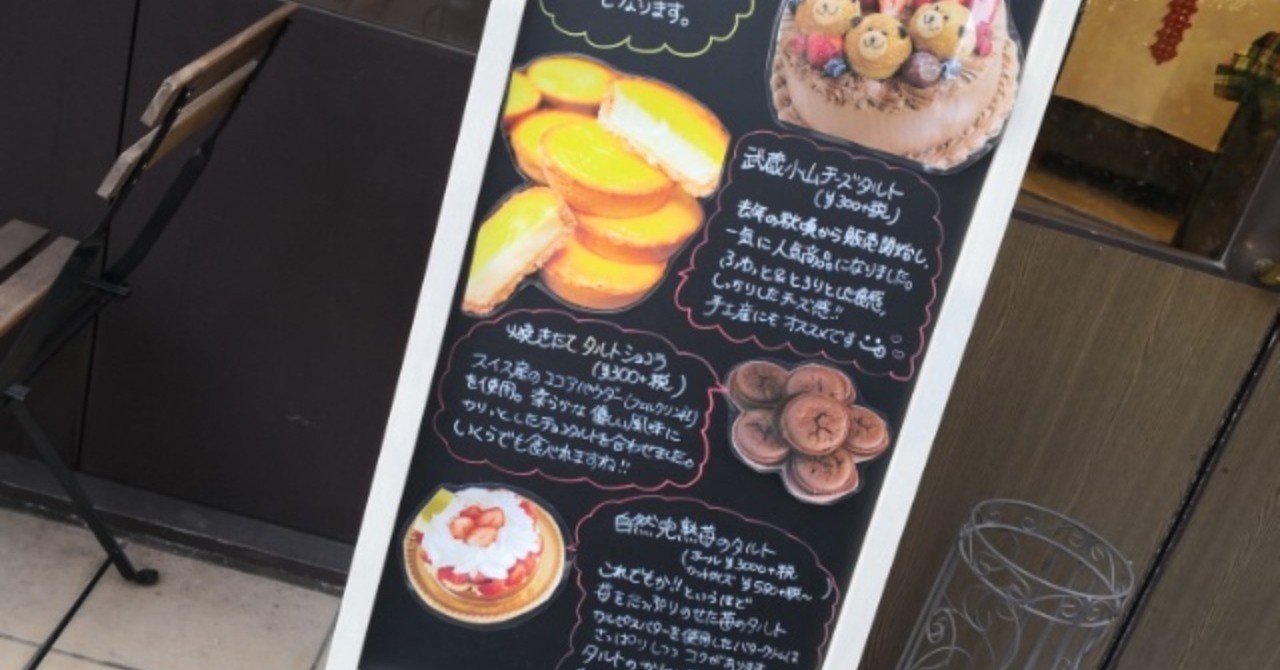 となります。
武蔵小山チーズタルト
(¥300+税)
去年の秋頃から販売開始し、
一気に人気商品になりました。
ふわっと&とろりとした食感、
しっかりしたチーズ感!!
手土産にもオススメです
焼きたてタルトショコラ
(¥300+税)
スイス産のココアパウダー(フェルクリン社)
を使用。柔らかな優しい風味に
カリッとしたチョコタルトを合わせました。
いくらでも食べれますね!!
自然完熟苺のタルト
(ホール¥3000+税
カットサイズ ¥580+税〜)
これでもか!!というほど
苺をたっぷりのせた苺のタルト
カルピスバターを使用したバタークリームは
さっぱりしつつコクがあります
タルトの